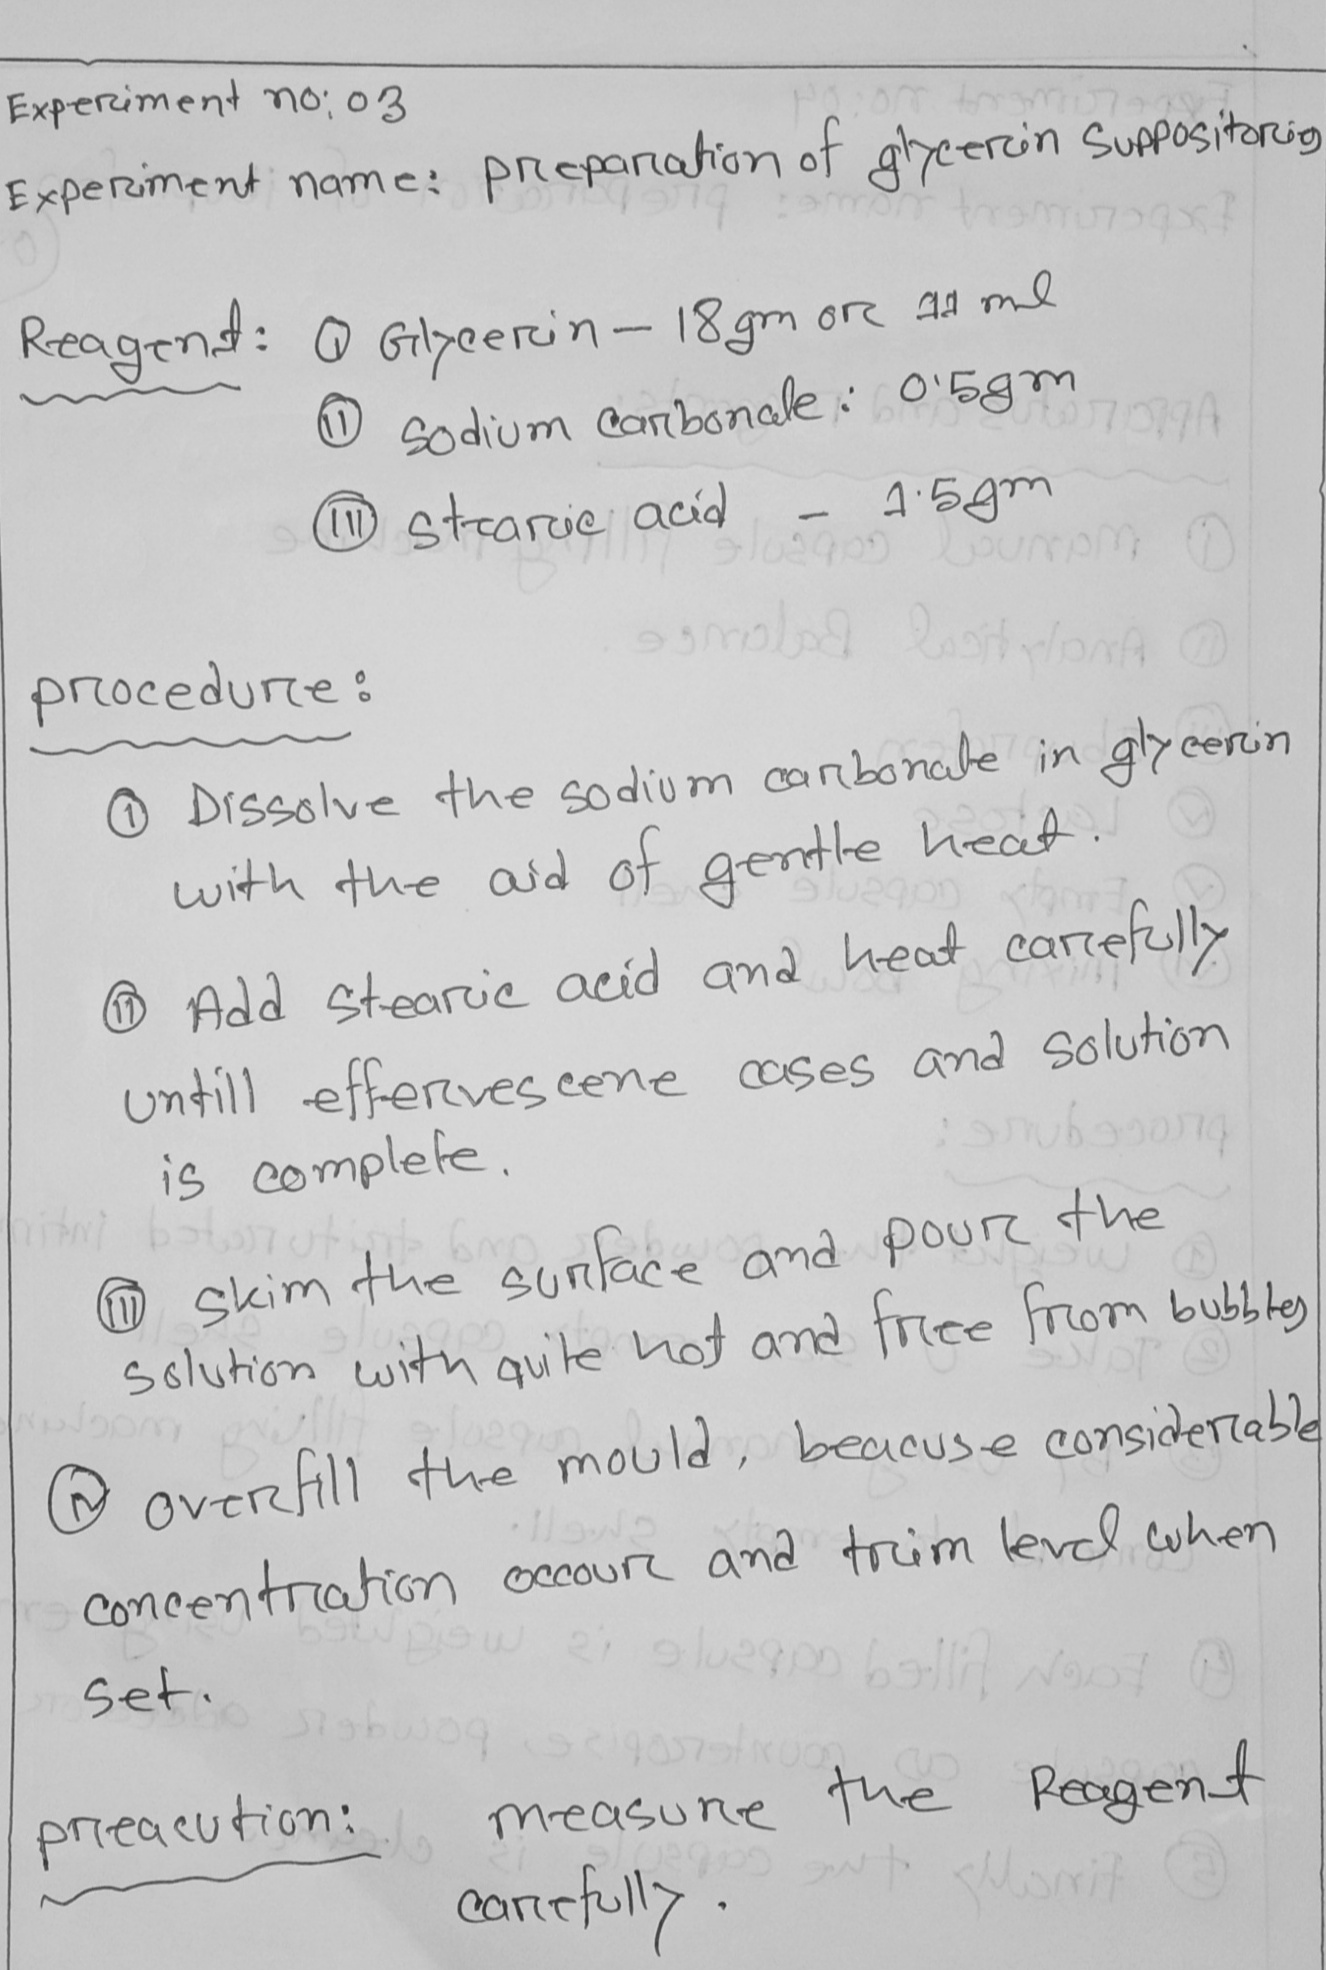 Experiment no: 03
Experiment name: preparation of glycerin suppositories
Reagent: (i) Glycerin - 18 gm or 11 ml
(ii) Sodium carbonate : 0.5 gm
(iii) Stearic acid - 1.5 gm
procedure:
(i) Dissolve the sodium carbonate in glycerin
with the aid of gentle heat.
(ii) Add stearic acid and heat carefully
untill effervescene cases and solution
is complete.
(iii) skim the surface and pour the
solution with quite hot and free from bubbles
(iv) overfill the mould, beacuse considerable
concentration occour and trim level when
set.
preacution: measure the Reagent
carefully.